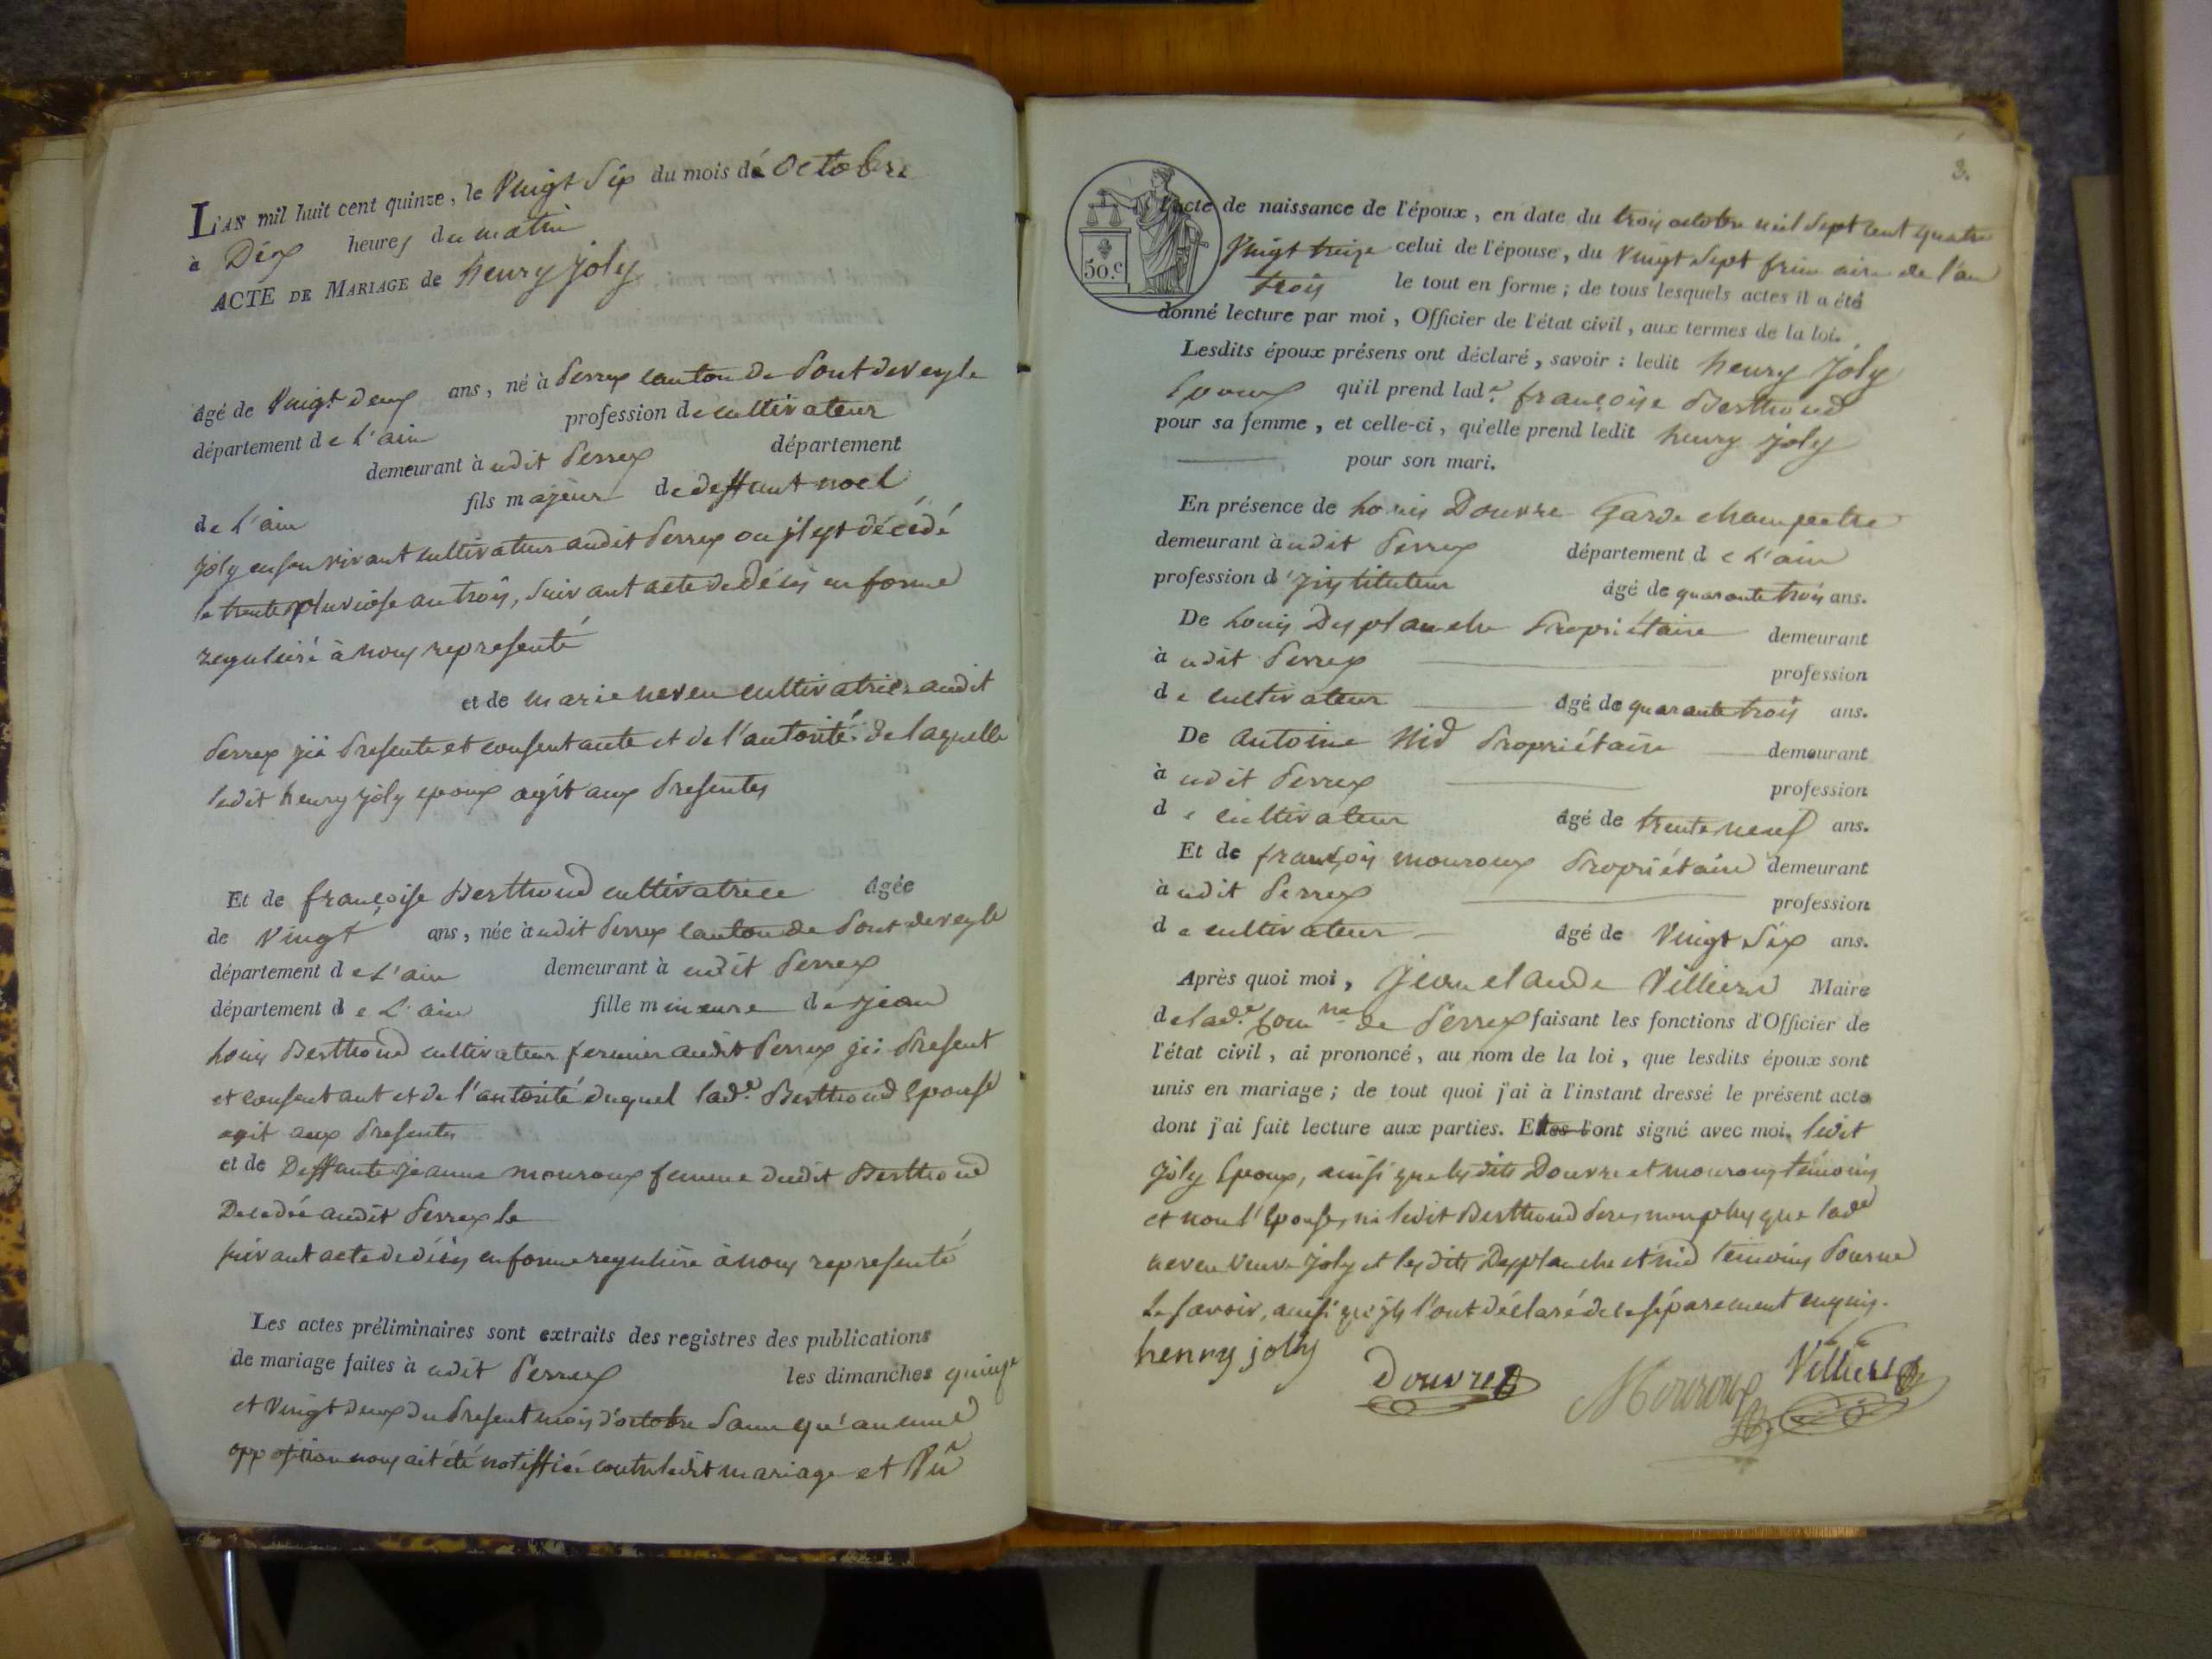 L'AN mil huit cent quinze, le Vingt Six du mois de Octobre
à Dix heures du matin
ACTE DE MARIAGE de henry joly
âgé de Vingt deux ans, né à Perrex canton de Pont deveyle
département de L'ain profession de cultivateur
demeurant à udit Perrex département
de L'ain fils majeur de deffunt noel
joly en son vivant cultivateur audit Perrex ou jl est décédé
le trente pluviose an trois, suivant acte de décès en forme
reguliere à nous representé
et de marie neveu cultivatrice audit
Perrex jci Presente et consentante et de l'autorité de laquelle
ledit henry joly epoux agit aux Presentes
Et de françoise Berthoud cultivatrice âgée
de Vingt ans, née à udit Perrex canton de Pont deveyle
département de L'ain demeurant à udit Perrex
département de L'ain fille mineure de jean
Louis Berthoud cultivateur fermier audit Perrex jci Present
et consentant et de l'autorité duquel lad.e Berthoud Epouse
agit aux Presentes
et de Deffunte jeanne mouroux femme dudit Berthoud
Decedée audit Perrex le
suivant acte de décès en forme reguliere à nous representé
Les actes préliminaires sont extraits des registres des publications
de mariage faites à udit Perrex les dimanches quinze
et Vingt deux du Present mois d'octobre Sans qu'aucune
opposition nous ait été notiffiée contre ledit mariage et Vû
3.
50.c
l'acte de naissance de l'époux, en date du trois octobre mil Sept cent quatre
Vingt treize celui de l'épouse, du Vingt Sept frimaire de l'an
trois le tout en forme; de tous lesquels actes il a été
donné lecture par moi, Officier de l'état civil, aux termes de la loi.
Lesdits époux présens ont déclaré, savoir: ledit henry Joly
Epoux qu'il prend lad.e françoise Berthoud
pour sa femme, et celle-ci, qu'elle prend ledit henry joly
pour son mari.
En présence de Louis Douvre Garde champetre
demeurant à udit Perrex département de L'ain
profession d'jnstituteur âgé de quarante trois ans.
De Louis Desplanche Propriétaire demeurant
à udit Perrex profession
de cultivateur âgé de quarante trois ans.
De antoine Nid Propriétaire demeurant
à udit Perrex profession
de cultivateur âgé de trente neuf ans.
Et de françois mouroux Propriétaire demeurant
à udit Perrex profession
de cultivateur âgé de Vingt Six ans.
Après quoi moi, Jean claude Villiers Maire
de lad.e Com ne de Perrex faisant les fonctions d'Officier de
l'état civil, ai prononcé, au nom de la loi, que lesdits époux sont
unis en mariage; de tout quoi j'ai à l'instant dressé le présent acte
dont j'ai fait lecture aux parties. Elles l'ont signé avec moi. ledit
joly Epoux, ainsi que lesdits Douvre et mouroux témoins
et non l'Epouse, ni ledit Berthoud Pere, non plus que lade
neveu veuve joly et lesdits Desplanche et nid temoins Pour ne
Le savoir, ainsi qu'jls l'ont déclaré de ce séparement enquis.
henry joly
Douvre
Mouroux
Villiers